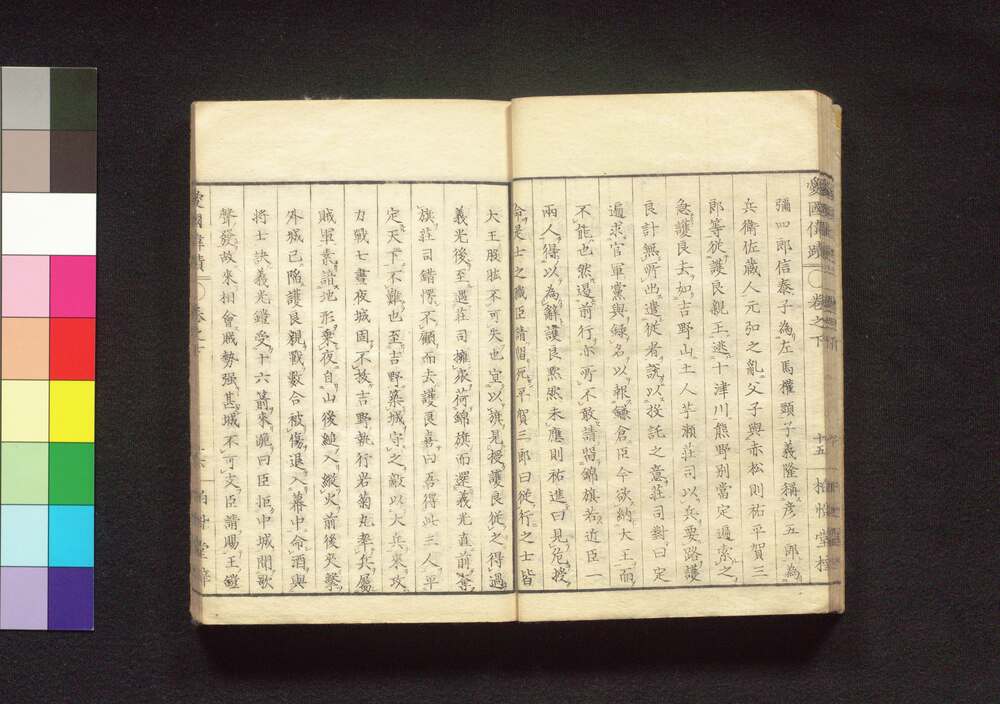 愛國偉蹟 卷之下 十五
彌四郎信泰子為左馬權頭子義隆稱彥五郎為
兵衛佐歲人元弘之亂父子與赤松則祐平賀三
郎等從護良親王逃十津川熊野別當定遍索之
急護良去如吉野山土人芋瀨莊司以兵要路護
良計無所出遣從者謊以投託之意莊司對曰定
遍求官軍黨與錄名以報鎌倉臣今欲納大王而
不能也然過前行亦所不敢請賜錦旗若近臣一
兩人得以為辭護良默然未應則祐進曰見危授
命是士之職臣請留死平賀三郎曰從行之士皆
大王股肱不可失也宜以旗見授護良從之得過
義光後至遇莊司擁衆荷錦旗而還義光直前奪
旗莊司錯愕不顧而去護良喜曰吾得此三人平
定天下不難也至吉野築城守之敵以大兵來攻
力戰七晝夜城固不拔吉野執行岩菊丸率兵屬
賊軍素諳地形乘夜自山後縋入縱火前後夾擊
外城已陷護良親戰數合被傷退入幕中命酒與
將士訣義光鎧受十六箭來視曰臣拒中城聞歌
聲發故來相會賊勢强甚城不可支臣請賜王鎧
愛國偉蹟 卷之下